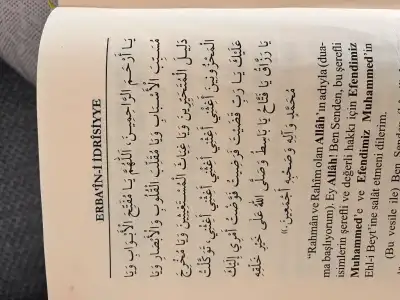 ERBAÎN-İ İDRİSİYYE
يَا أَرْحَمَ الرَّاحِمِينَ، اَللّٰهُمَّ يَا مُفَتِّحَ الْأَبْوَابِ وَيَا
مُسَبِّبَ الْأَسْبَابِ وَيَا مُقَلِّبَ الْقُلُوبِ وَالْأَبْصَارِ وَيَا
دَلِيلَ الْمُتَحَيِّرِينَ وَيَا غِيَاثَ الْمُسْتَغِيثِينَ وَيَا مُفَرِّجَ
الْمَحْزُونِينَ أَغِثْنِي أَغِثْنِي أَغِثْنِي، تَوَكَّلْتُ
عَلَيْكَ يَا رَبِّ فَوَّضْتُ أَمْرِي إِلَيْكَ
يَا رَزَّاقُ يَا فَتَّاحُ يَا بَاسِطُ وَصَلَّى اللهُ عَلَى خَيْرِ خَلْقِهِ
مُحَمَّدٍ وَآلِهِ وَصَحْبِهِ أَجْمَعِينَ.»
"Rahmân ve Rahîm olan Allâh'ın adıyla (dua-
ma başlıyorum). Ey Allâh! Ben Senden, bu şerefli
isimlerin şerefli ve değerli hakkı için Efendimiz
Muhammed'e ve Efendimiz Muhammed'in
Ehl-i Beyt'ine salât etmeni dilerim.
(Bu vesile ile) Ben